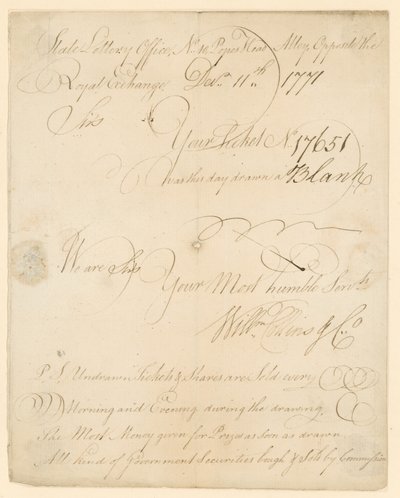 State Lottery Office, No. 10 Popes Head Alley, Opposite the
Royal Exchange, Decr. 11th. 1771
Sirs
Your Ticket No. 17651
was this day drawn a Blank
We are Sirs
Your Most humble Servts
Willm & Co
P.S. Undrawn Tickets & Shares are Sold every
Morning and Evening during the drawing
The Most Money given for Prizes as soon as drawn
All kind of Government Securities bough & Sold by Commission